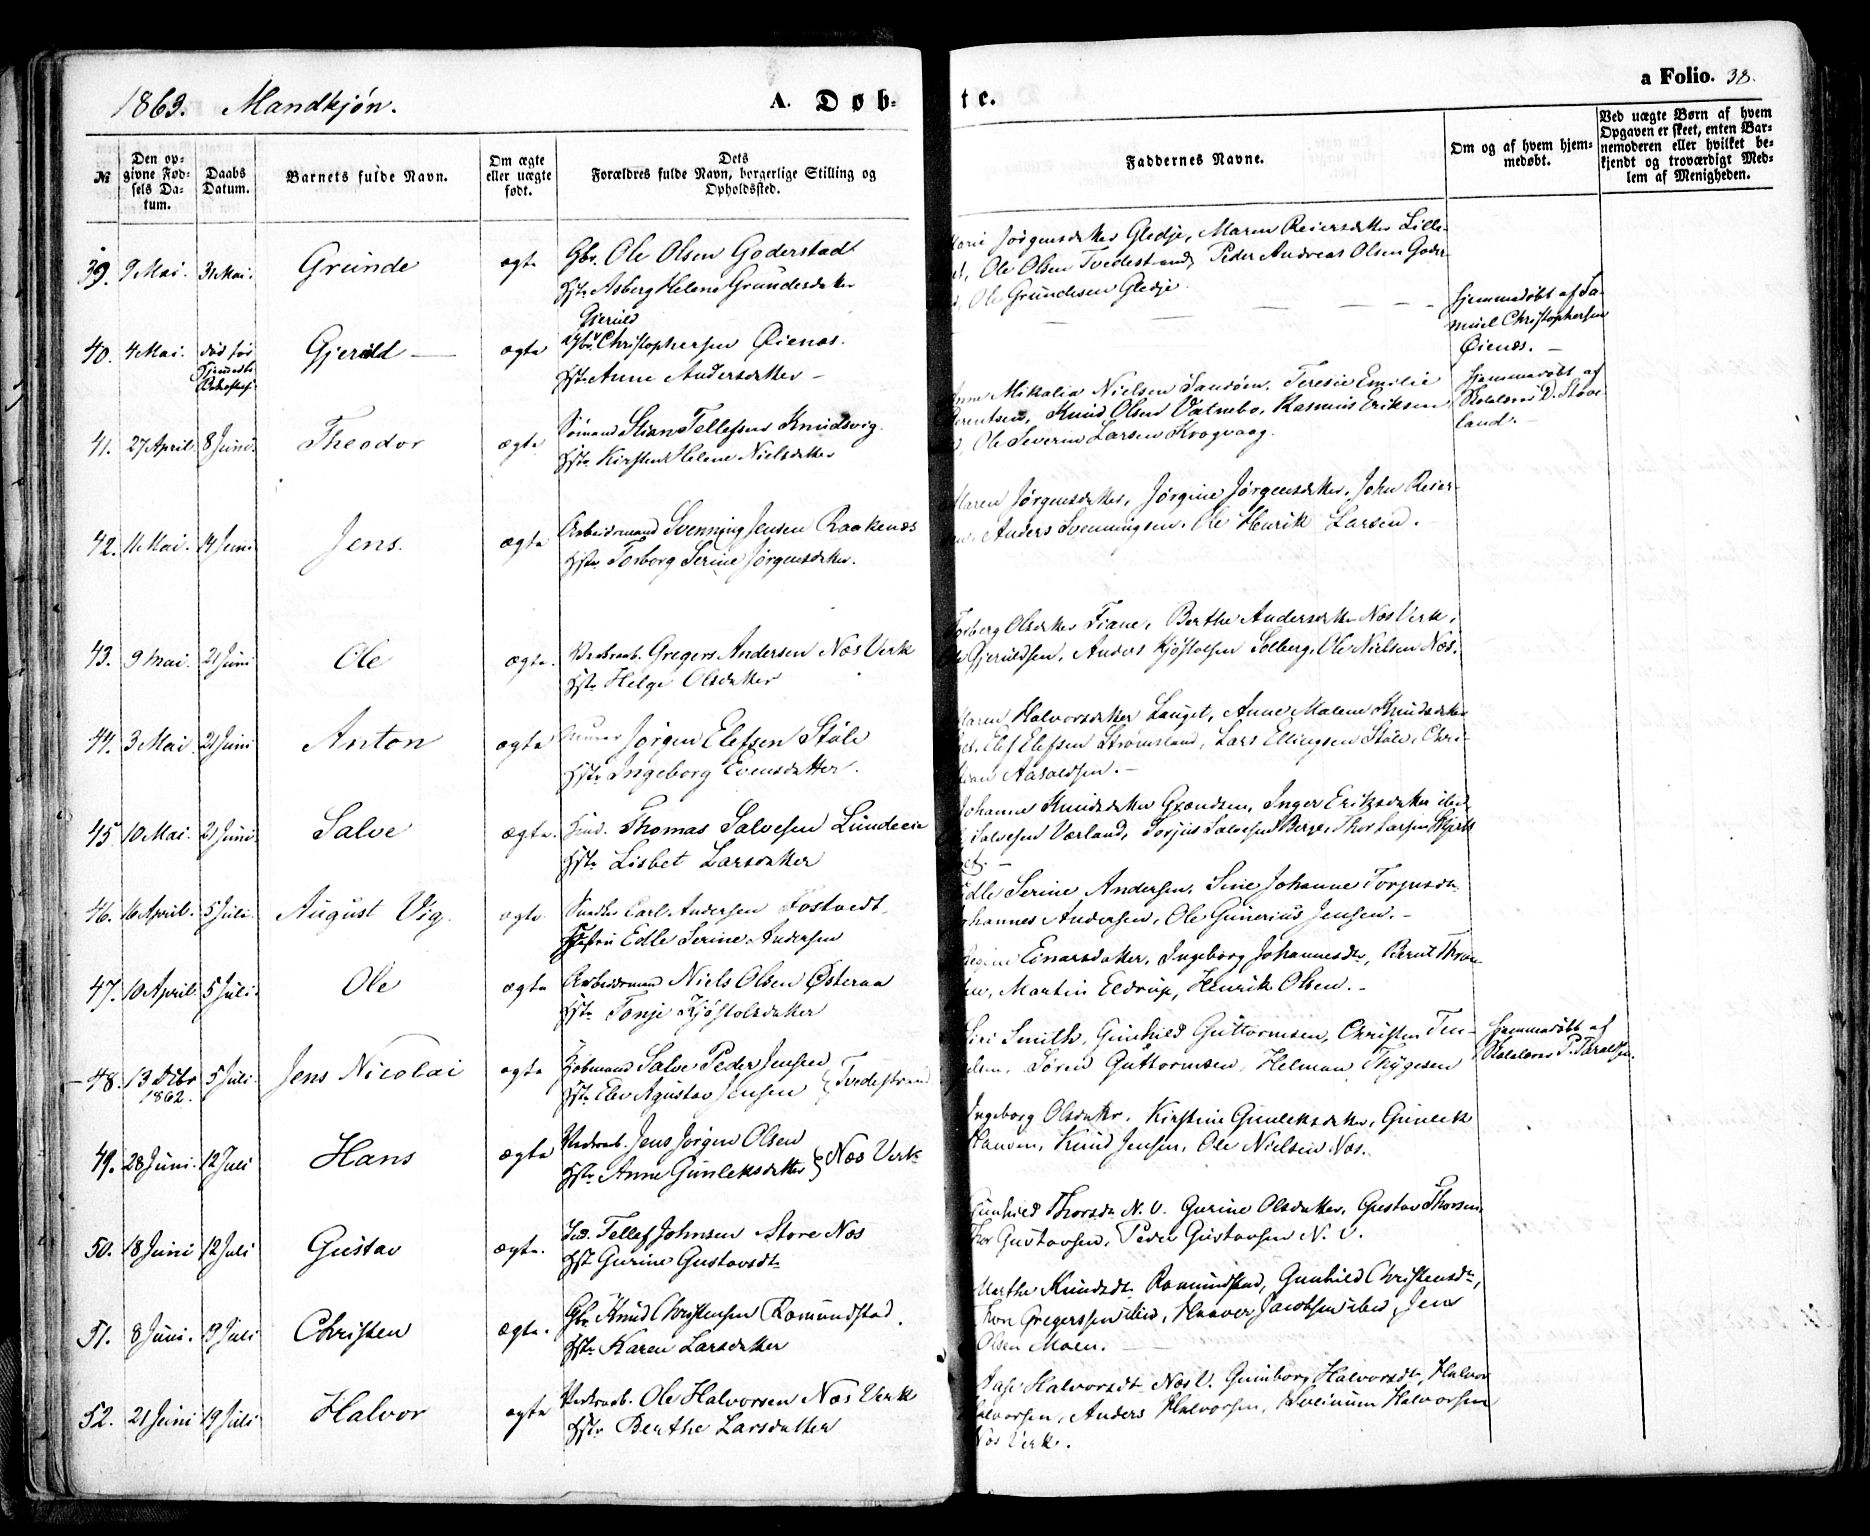 1863. Mandkjøn.
A. Døb-
te.
a Folio. 38.
№
Den op-
givne Fød-
sels Da-
tum.
Daabs
Datum.
Barnets fulde Navn.
Om ægte
eller uægte
født.
Dets
Forældres fulde Navn, borgerlige Stilling og
Opholdssted.
Faddernes Navne.
Om og af hvem hjem-
medøbt.
Ved uægte Børn af hvem
Opgaven er skeet, enten Bar-
nemoderen eller hvilket be-
kjendt og troværdigt Med-
lem af Menigheden.
39. 9 Mai. 31 Mai. Grunde ægte Gbr. Ole Olsen Goderstad
Hstr Asberg Helene Grundesdatter
Jørgensdatter Gledje, Maren Reiersdatter Lille-
Ole Olsen Tvedestrand, Peder Andreas Olsen Goder-
Ole Grundesen Gledje.
40. 4 Mai. død før Gjeruld — ægte Gjeruld
Gbr. Christophersen Øienæs.
Hstr Anne Andersdatter —
Hjemmedøbt af Sa-
muel Christophersen
Øienæs. —
41. 27 April. 8 Juni. Theodor ægte Sømand Stian Tellefsen Knudsvig.
Hstr Kirsten Helene Nielsdatter
Anne Mikalia Nielsen Sandøen, Teresie Emilie
Berentsen, Knud Olsen Valnebo, Rasmus Eriksen
Ole Severin Larsen Krogvaag.
Hjemmedøbt af
D. Stave-
land. —
42. 11 Mai. 14 Juni Jens. ægte Arbeidsmand Svenning Jensen Raakenæs
Hstr Torborg Serine Jørgensdatter.
Maren Jørgensdatter, Jørgine Jørgensdatter, John Reier-
Anders Svenningsen, Ole Henrik Larsen.
43. 9 Mai. 21 Juni Ole ægte. Verksarb. Gregers Andersen Næs Verk
Hstr Helge Olsdatter
Torberg Olsdatter Fiane, Berthe Andersdatter Næs Verk,
Gjeruldsen, Anders Kjøstolsen Solberg, Ole Nielsen Næs.
44. 3 Mai 21 Juni Anton ægte Jørgen Elefsen Ståle
Hstr Ingeborg Evensdatter.
Maren Halvorsdatter Lauget, Anne Malene Knudsdatter
Elef Elefsen Strømsland, Lars Ellingsen Ståle, Chri-
stian Aasoldsen. —
45 10 Mai. 21 Juni. Salve ægte. Thomas Salvesen Lundeeie
Hstr Lisbet Larsdatter
Johanne Knudsdatter Grændsen, Inger Eriksdatter ibid
Salvesen Værland, Torjus Salvesen Berge, Thor Larsen
46. 16 April. 5 Juli. August Vig. ægte. Snedker Carl Andersen Fostvedt.
Hustru Edle Serine Andersen
Edle Serine Andersen, Sine Johanne
Johannes Andersen, Ole Gunerius Jensen. —
47. 10 April. 5 Juli. Ole ægte Arbeidsmand Niels Olsen Østeraa
Hstr Tonje Kjøstolsdatter
Regine Einarsdatter, Ingeborg Johannesdtr, Bernt Thom-
sen, Martin Eldrup, Henrik Olsen. —
48. 13 Dcbr
1862. 5 Juli. Jens Nicolai ægte Kobmand Salve Peder Jensen
Hstr Elev Agustav Jensen } Tvedestrand
Siri Smith, Gunhild Guttormsen, Christen Ten-
Søren Guttormsen, Helman Thygesen
Hjemmedøbt af
P. Taraldsen.
49. 28 Juni. 12 Juli Hans ægte Verksarb. Jens Jørgen Olsen
Hstr Anne Gunleksdatter } Næs Verk
Ingeborg Olsdatter, Kirstine Gunleksdatter, Gunlek
Knud Jensen, Ole Nielsen Næs.
50. 18 Juni 12 Juli Gustav ægte. Ind. Tellef Johnsen Store Næs
Hst Gurine Gustavsdtr
Gunhild Thorsdtr N. V. Gurine Olsdatter, Gustav Thorsen,
Thor Gustavsen, Peder Gustavsen N. V.
51. 8 Juni. 19 Juli Christen ægte. Gbr Knud Christensen Romundstad.
Hstr Karen Larsdatter
Marthe Knudsdtr Romundstad, Gunhild Christensdtr,
Gregerssen ibid, Halvor Jacobsen ibid, Jens
Olsen Moen. —
52. 21 Juni 19 Juli Halvor ægte Verksarb. Ole Halvorsen Næs Verk
Hstr Berthe Larsdatter
Aase Halvorsdtr Næs V. Gunborg Halvorsdtr, Halvor
Halvorsen, Anders Halvorsen, Sveinum Halvorsen
Næs Verk.